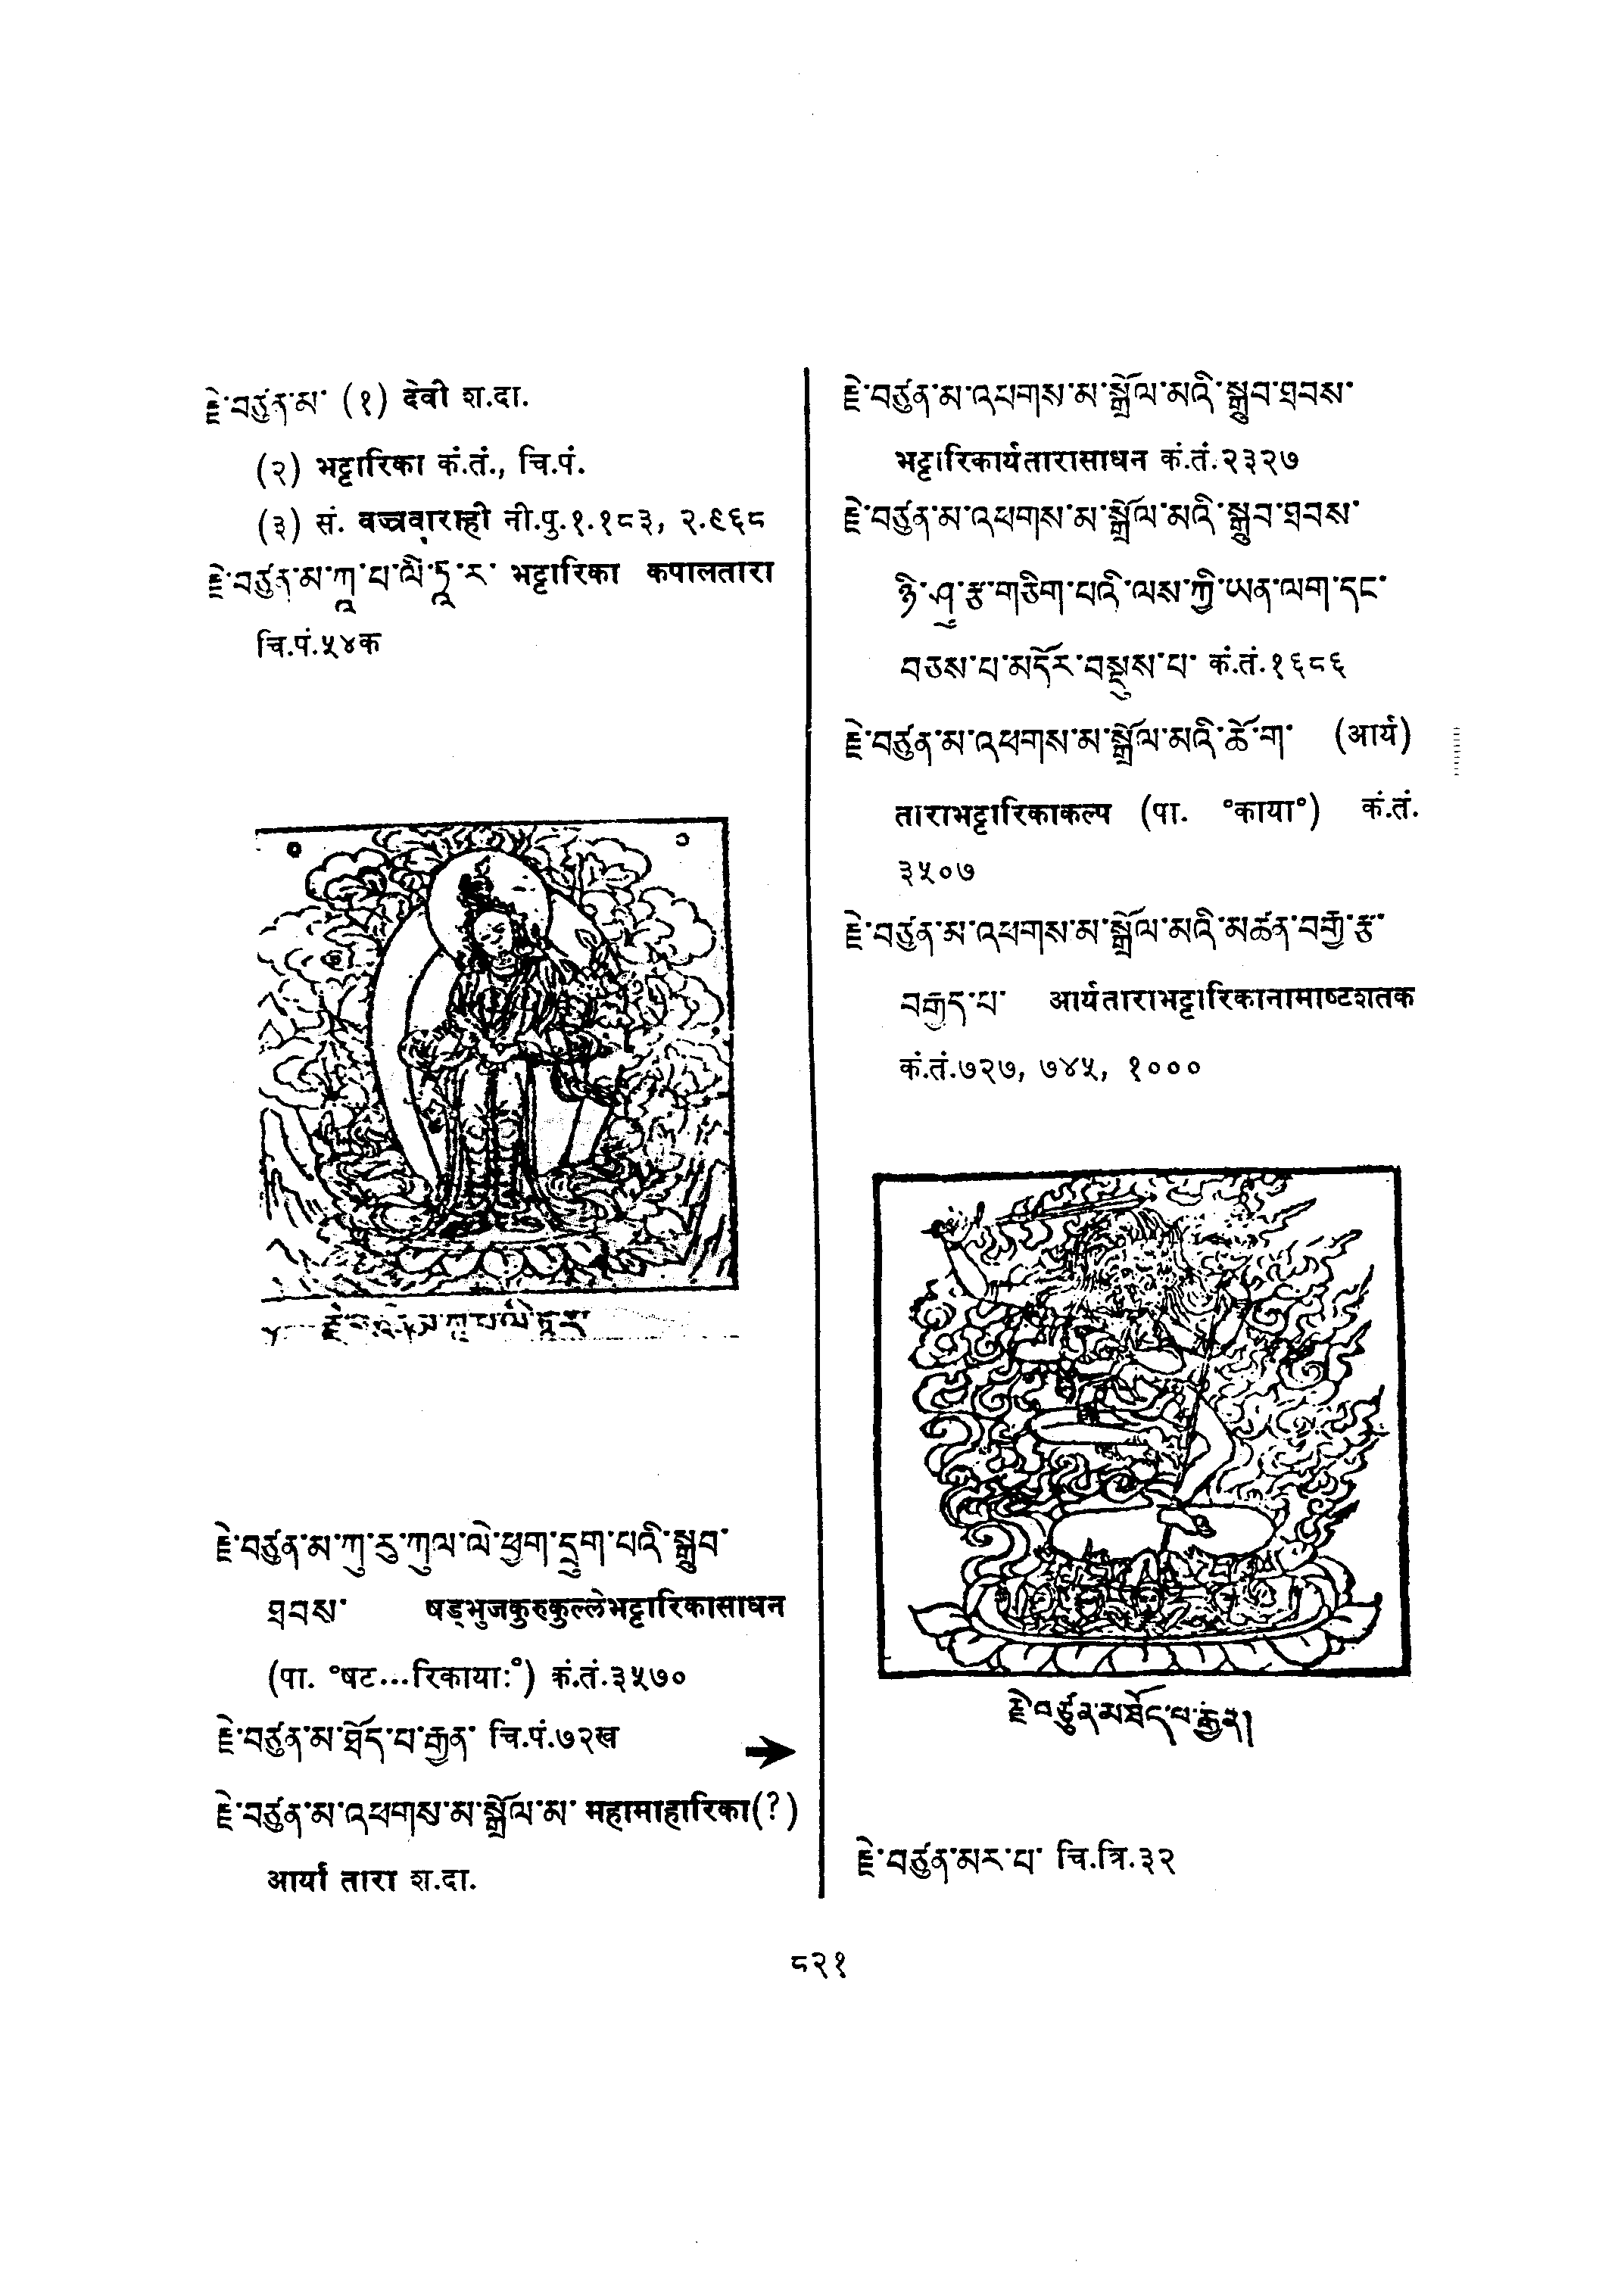 རྗེ་བཙུན་མ་ (१) देवी श.दा.
(२) भट्टारिका कं.तं., चि.पं.
(३) सं. वज्रवाराही नी.पु.१.१८३, २.९६८
རྗེ་བཙུན་མ་ཀཱ་པ་ལེ་ཏཱ་ར་ भट्टारिका कपालतारा
चि.पं.५४क
རྗེ་བཙུན་མ་ཀུ་རུ་ཀུལ་ལེ་ཕྱག་དྲུག་པའི་སྒྲུབ་
ཐབས་ षड्भुजकुरुकुल्लेभट्टारिकासाधन
(पा. °षट...रिकायाः°) कं.तं.३५७०
རྗེ་བཙུན་མ་ཐོད་པ་རྒྱན་ चि.पं.७२ख
རྗེ་བཙུན་མ་འཕགས་མ་སྒྲོལ་མ་ महामाहारिका(?)
आर्या तारा श.दा.
རྗེ་བཙུན་མ་འཕགས་མ་སྒྲོལ་མའི་སྒྲུབ་ཐབས་
भट्टारिकार्यतारासाधन कं.तं.२३२७
རྗེ་བཙུན་མ་འཕགས་མ་སྒྲོལ་མའི་སྒྲུབ་ཐབས་
ཉི་ཤུ་རྩ་གཅིག་པའི་ལས་ཀྱི་ཡན་ལག་དང་
བཅས་པ་མདོར་བསྡུས་པ་ कं.तं.१६८६
རྗེ་བཙུན་མ་འཕགས་མ་སྒྲོལ་མའི་ཆོ་ག་ (आर्य)
ताराभट्टारिकाकल्प (पा. °काया°) कं.तं.
३५०७
རྗེ་བཙུན་མ་འཕགས་མ་སྒྲོལ་མའི་མཚན་བརྒྱ་རྩ་
བརྒྱད་པ་ आर्यताराभट्टारिकानामाष्टशतक
कं.तं.७२७, ७४५, १०००
རྗེ་བཙུན་མ་ཐོད་པ་རྒྱན།
རྗེ་བཙུན་མར་པ་ चि.त्रि.३२
८२१